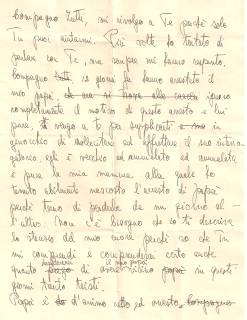 Compagno Zutti, mi rivolgo a Te perché solo
Tu puoi aiutarmi. Più volte ho tentato di
parlare con Te, ma sempre mi hanno respinto.
Compagno Zutti, 12 giorni fa hanno arrestato il
mio papà che ora si trova alle carceri ignoro
completamente il motivo di questo arresto e lui
pure, ti vengo a te per supplicarti e
ginocchio di sollecitare ed affrettare il suo interro
gatorio, egli è vecchio ed ammalato ed ammalata
è pure la mia mamma alla quale ho
tenuto abilmente nascosto l'arresto di papà
perché temo di perderla da un giorno al-
l'altro. Non c'è bisogno che io ti descriva
lo strazio del mio cuore perché so che in
mi comprendi e comprenderai certo anche
quanto di avere vicino papà in questi
il mio papà
giorni tanto tristi.
Papà è d'animo retto ed onesto, compagno